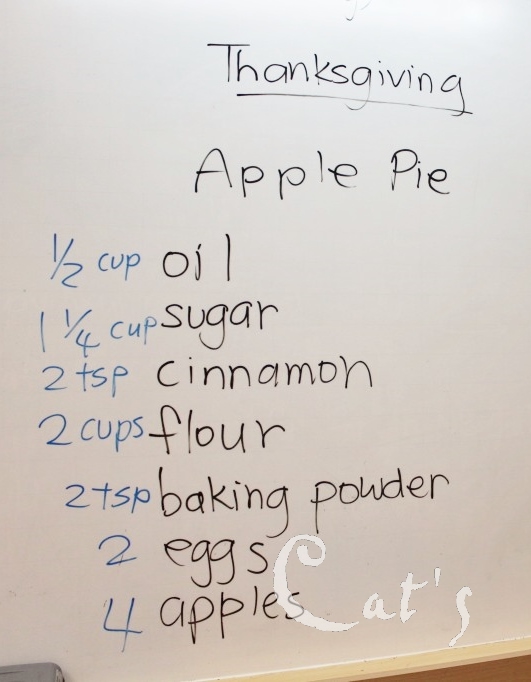 Thanksgiving
Apple Pie
1/2 cup oil
1 1/4 cup sugar
2 tsp cinnamon
2 cups flour
2 tsp baking powder
2 eggs
4 apples
Cat's